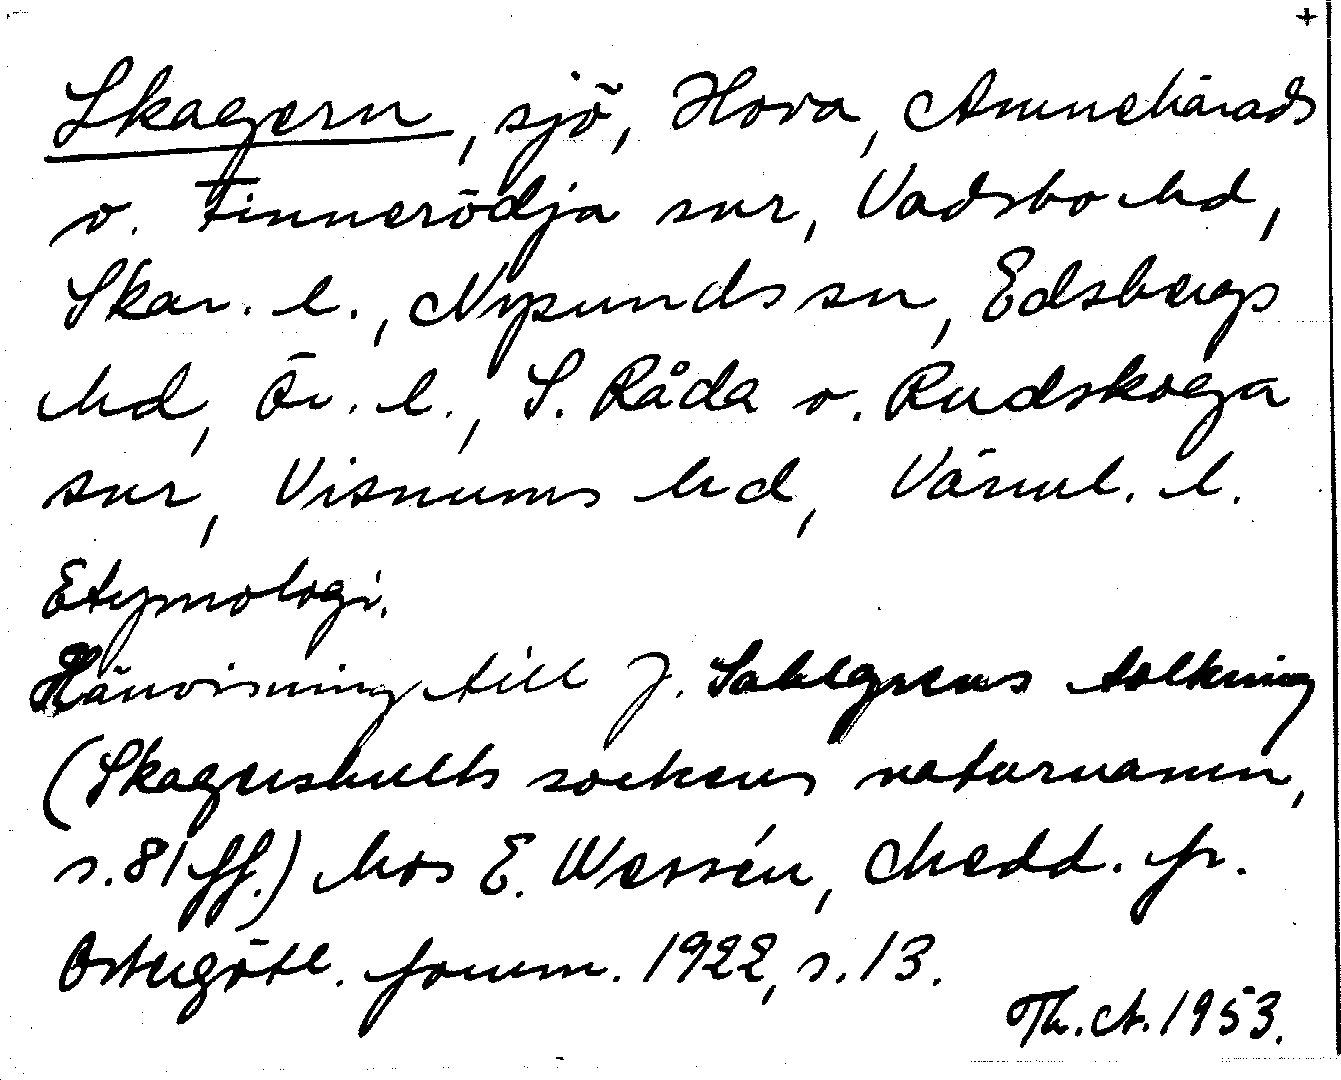 +
Skagern, sjö, Hova, Amnehärads
o. Finnerödja snr, Vadsbo hd,
Skar. l., Nysunds sn, Edsbergs
hd, Ör. l., S. Råda o. Rudskoga
snr, Visnums hd, Värml. l.
Etymologi.
Hänvisning till J. Sahlgrens tolkning
(Skagershults sockens naturnamn,
s. 81 ff.) hos E. Wessén, Medd. fr.
Östergötl. fornm. 1922, s. 13.
Th. A. 1953.